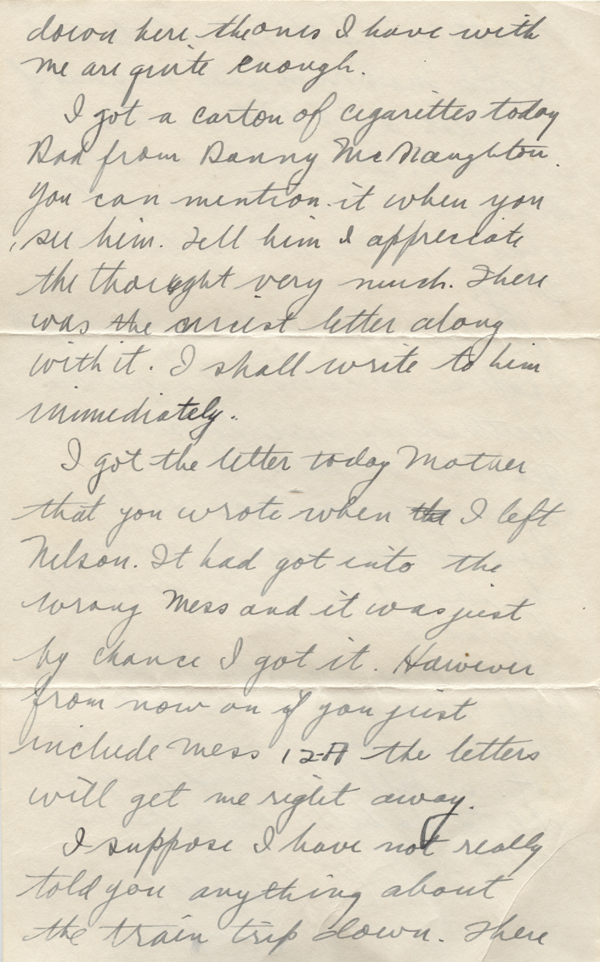 down here the ones I have with
me are quite enough.
I got a carton of cigarettes today
Dad from Danny McNaughton.
You can mention it when you
see him. Tell him I appreciate
the thought very much. There
was the nicest letter along
with it. I shall write to him
immediately.
I got the letter today Mother
that you wrote when the I left
Nelson. It had got into the
wrong Mess and it was just
by chance I got it. However
from now on if you just
include Mess 12-A the letters
will get me right away.
I suppose I have not really
told you anything about
the train trip down. There